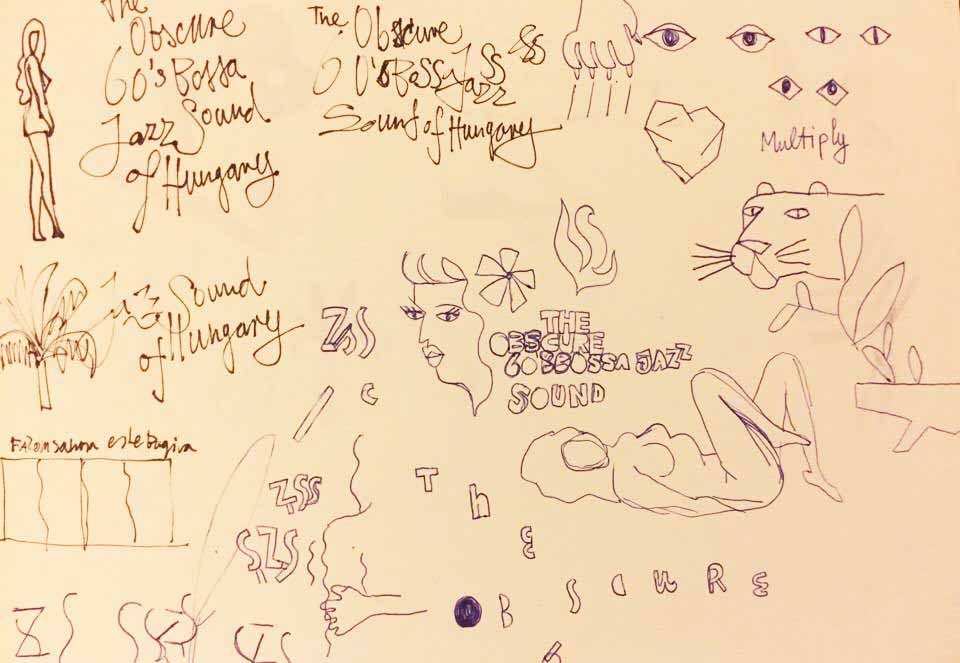 The
Obscure
60's Bossa
Jazz Sound
of Hungary
The Obscure
60's Bossa Jazz
Sound of Hungary
SS
Multiply
Jazz Sound
of Hungary
ZSS
THE
OBSCURE
60S BOSSA JAZZ
SOUND
C
ZSS
SZS
ThE
OBSCURE
ZS